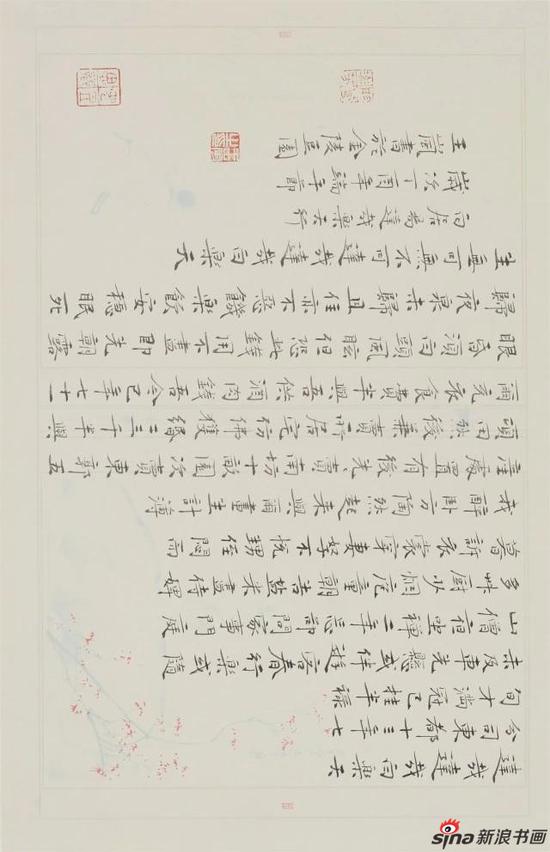 達哉達哉白樂天
分司東都十三年七
旬才滿冠已挂半祿
未及車先懸或伴遊客春行樂或隨
山僧夜坐禪二年忘卻問家事門庭
多艸廚少煙庖童朝告鹽米盡侍婢
暮訴衣裳穿妻孥不悅甥侄悶而
我醉臥方陶然起來與爾畫生計薄
產處置有後先〻賣南坊十畝園次賣東郭五
頃田然後兼賣所居宅仿佛獲緡二三千半與
爾充衣食費半與吾供酒肉錢吾今已年七十一
眼昏須白頭風眩但恐此錢用不盡即先朝露
歸夜泉未歸且住亦不惡饑餐樂飲安穩眠死
生無可無不可達哉達哉白樂天
白居易達哉樂天行
歲次丁酉年端午節
王崗書於金陵豆園
sina新浪书画